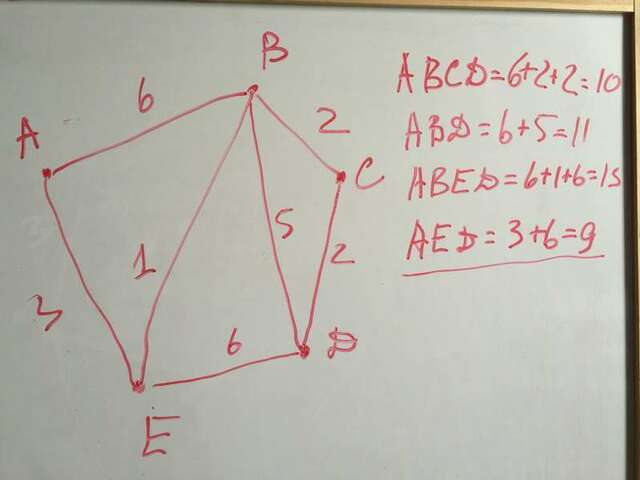 B
6
2
A
C
5
1
2
3
6
D
E
ABCD=6+2+2=10
ABD=6+5=11
ABED=6+1+6=13
AED=3+6=9